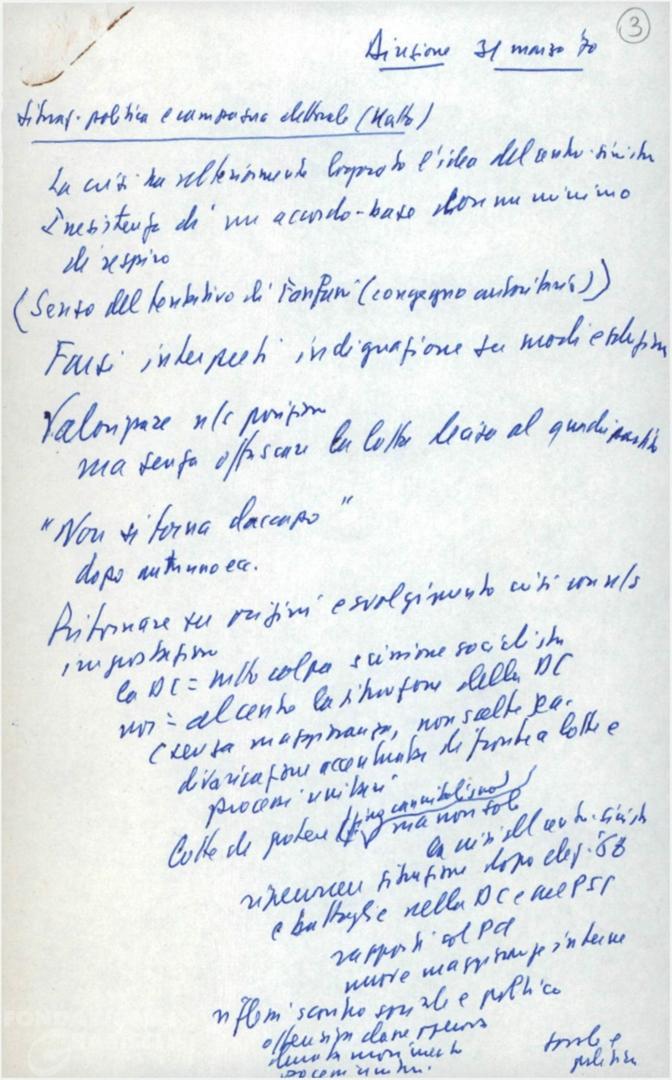 3
Direzione 31 marzo '70
Situaz. politica e campagna elettorale (Natta)
La crisi ha ulteriormente logorato l'idea del centro-sinistra
Inesistenza di un accordo-base d'un minimo
di respiro
(Senso del tentativo di Fanfani (congegno autoritario))
Farsi interpreti indignazione su modi e soluzione
Valorizzare n/s posizione
ma senza offuscare la lotta decisa al quadripartito
"Non si torna daccapo"
dopo autunno ecc.
Ritornare su origini e svolgimento crisi con n/s
impostazione
la DC = tutto colpa scissione socialista
noi = al centro la situazione della DC
(senza maggioranza, non scelte ecc.
divaricazione accentuata di fronte a lotte e
processi unitari
Lotte di potere (fino cannibalismo)
ma non solo
la crisi del centro-sinistra
situazione dopo elez. '68
e battaglie nella DC e nel PSI
rapporti col PCI
nuove maggioranze interne
riflessi scontro sociale e politico
offensiva classe operaia
unitari.
sociale e
politica
FONDAZIONE
GRAMSCI